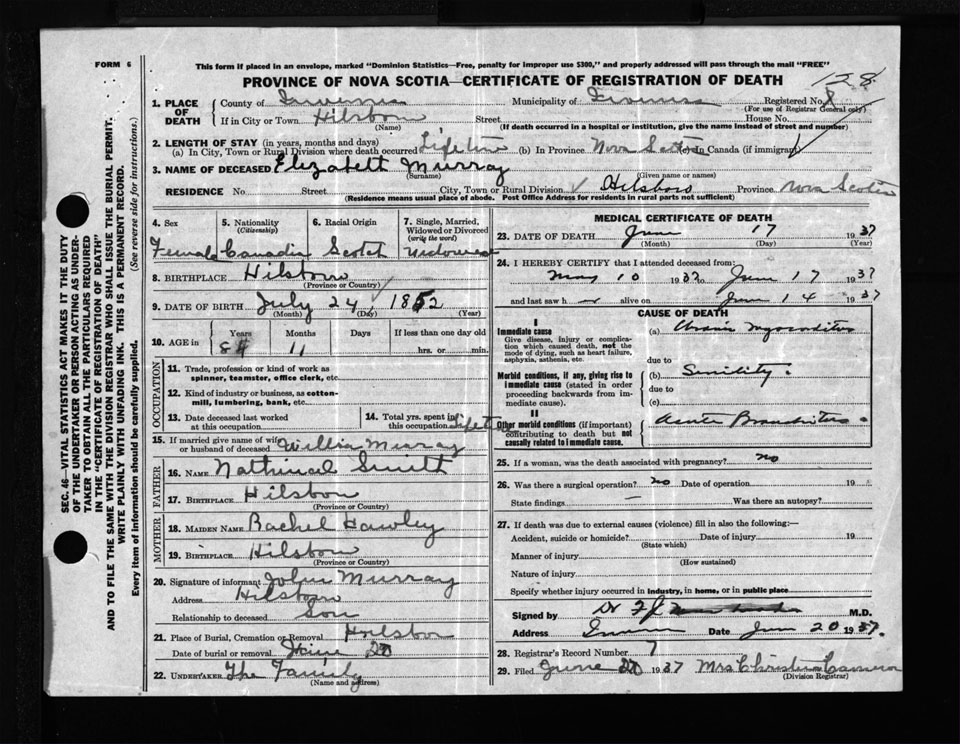 FORM 6
This form if placed in an envelope, marked "Dominion Statistics—Free, penalty for improper use $300," and properly addressed will pass through the mail "FREE"
PROVINCE OF NOVA SCOTIA—CERTIFICATE OF REGISTRATION OF DEATH
128
1. PLACE OF DEATH County of Inverness Municipality of Inverness Registered No. 8
(For use of Registrar General only)
If in City or Town Hilsboro Street House No.
(Name) (If death occurred in a hospital or institution, give the name instead of street and number)
2. LENGTH OF STAY (in years, months and days)
(a) In City, Town or Rural Division where death occurred Lifetime (b) In Province Nova Scotia (c) In Canada (if immigrant)
3. NAME OF DECEASED Elizabeth Murray
(Surname) (Given name or names)
RESIDENCE No. Street City, Town or Rural Division Hilsboro Province Nova Scotia
(Residence means usual place of abode. Post Office Address for residents in rural parts not sufficient)
4. Sex 5. Nationality (Citizenship) 6. Racial Origin 7. Single, Married, Widowed or Divorced (write the word)
Female Canadian Scotch Widowed
8. BIRTHPLACE Hilsboro
(Province or Country)
9. DATE OF BIRTH July 24 1852
(Month) (Day) (Year)
10. AGE in Years Months Days If less than one day old
84 11 hrs. or min.
OCCUPATION
11. Trade, profession or kind of work as spinner, teamster, office clerk, etc.
12. Kind of industry or business, as cotton-mill, lumbering, bank, etc.
13. Date deceased last worked at this occupation
14. Total yrs. spent in this occupation
15. If married give name of wife or husband of deceased Murray
FATHER
16. NAME Smith
17. BIRTHPLACE Hilsboro
(Province or Country)
MOTHER
18. MAIDEN NAME Rachel Hawley
19. BIRTHPLACE Hilsboro
(Province or Country)
20. Signature of informant John Murray
Address Hilsboro
Relationship to deceased Son
21. Place of Burial, Cremation or Removal Hilsboro
Date of burial or removal June 20
22. UNDERTAKER The Family
(Name and address)
MEDICAL CERTIFICATE OF DEATH
23. DATE OF DEATH June 17 1937
(Month) (Day) (Year)
24. I HEREBY CERTIFY that I attended deceased from:
May 10 1937 to June 17 1937
and last saw h alive on June 14 1937
CAUSE OF DEATH
I
Immediate cause
Give disease, injury or complication which caused death, not the mode of dying, such as heart failure, asphyxia, asthenia, etc.
(a) Chronic Myocarditis
due to
Morbid conditions, if any, giving rise to immediate cause (stated in order proceeding backwards from immediate cause).
(b) Senility
due to
(c)
II
Other morbid conditions (if important) contributing to death but not causally related to immediate cause.
Acute Bronchitis
25. If a woman, was the death associated with pregnancy? no
26. Was there a surgical operation? no Date of operation 19
State findings — Was there an autopsy?
27. If death was due to external causes (violence) fill in also the following:—
Accident, suicide or homicide? Date of injury 19
(State which)
Manner of injury
(How sustained)
Nature of injury
Specify whether injury occurred in industry, in home, or in public place
Signed by Dr M.D.
Address Date June 20 1937.
28. Registrar's Record Number 7
29. Filed June 20 1937 Mrs Christina Cameron
(Division Registrar)
SEC. 46—VITAL STATISTICS ACT MAKES IT THE DUTY
OF THE UNDERTAKER OR PERSON ACTING AS UNDER-
TAKER TO OBTAIN ALL THE PARTICULARS REQUIRED
IN THE "CERTIFICATE OF REGISTRATION OF DEATH"
AND TO FILE THE SAME WITH THE DIVISION REGISTRAR WHO SHALL ISSUE THE BURIAL PERMIT.
WRITE PLAINLY WITH UNFADING INK. THIS IS A PERMANENT RECORD.
Every item of information should be carefully supplied. (See reverse side for instructions.)